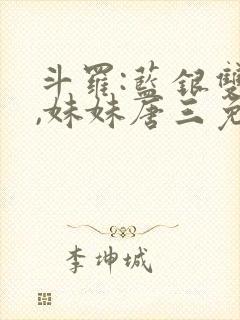 斗羅:藍銀雙
,妹妹唐三免
李坤城